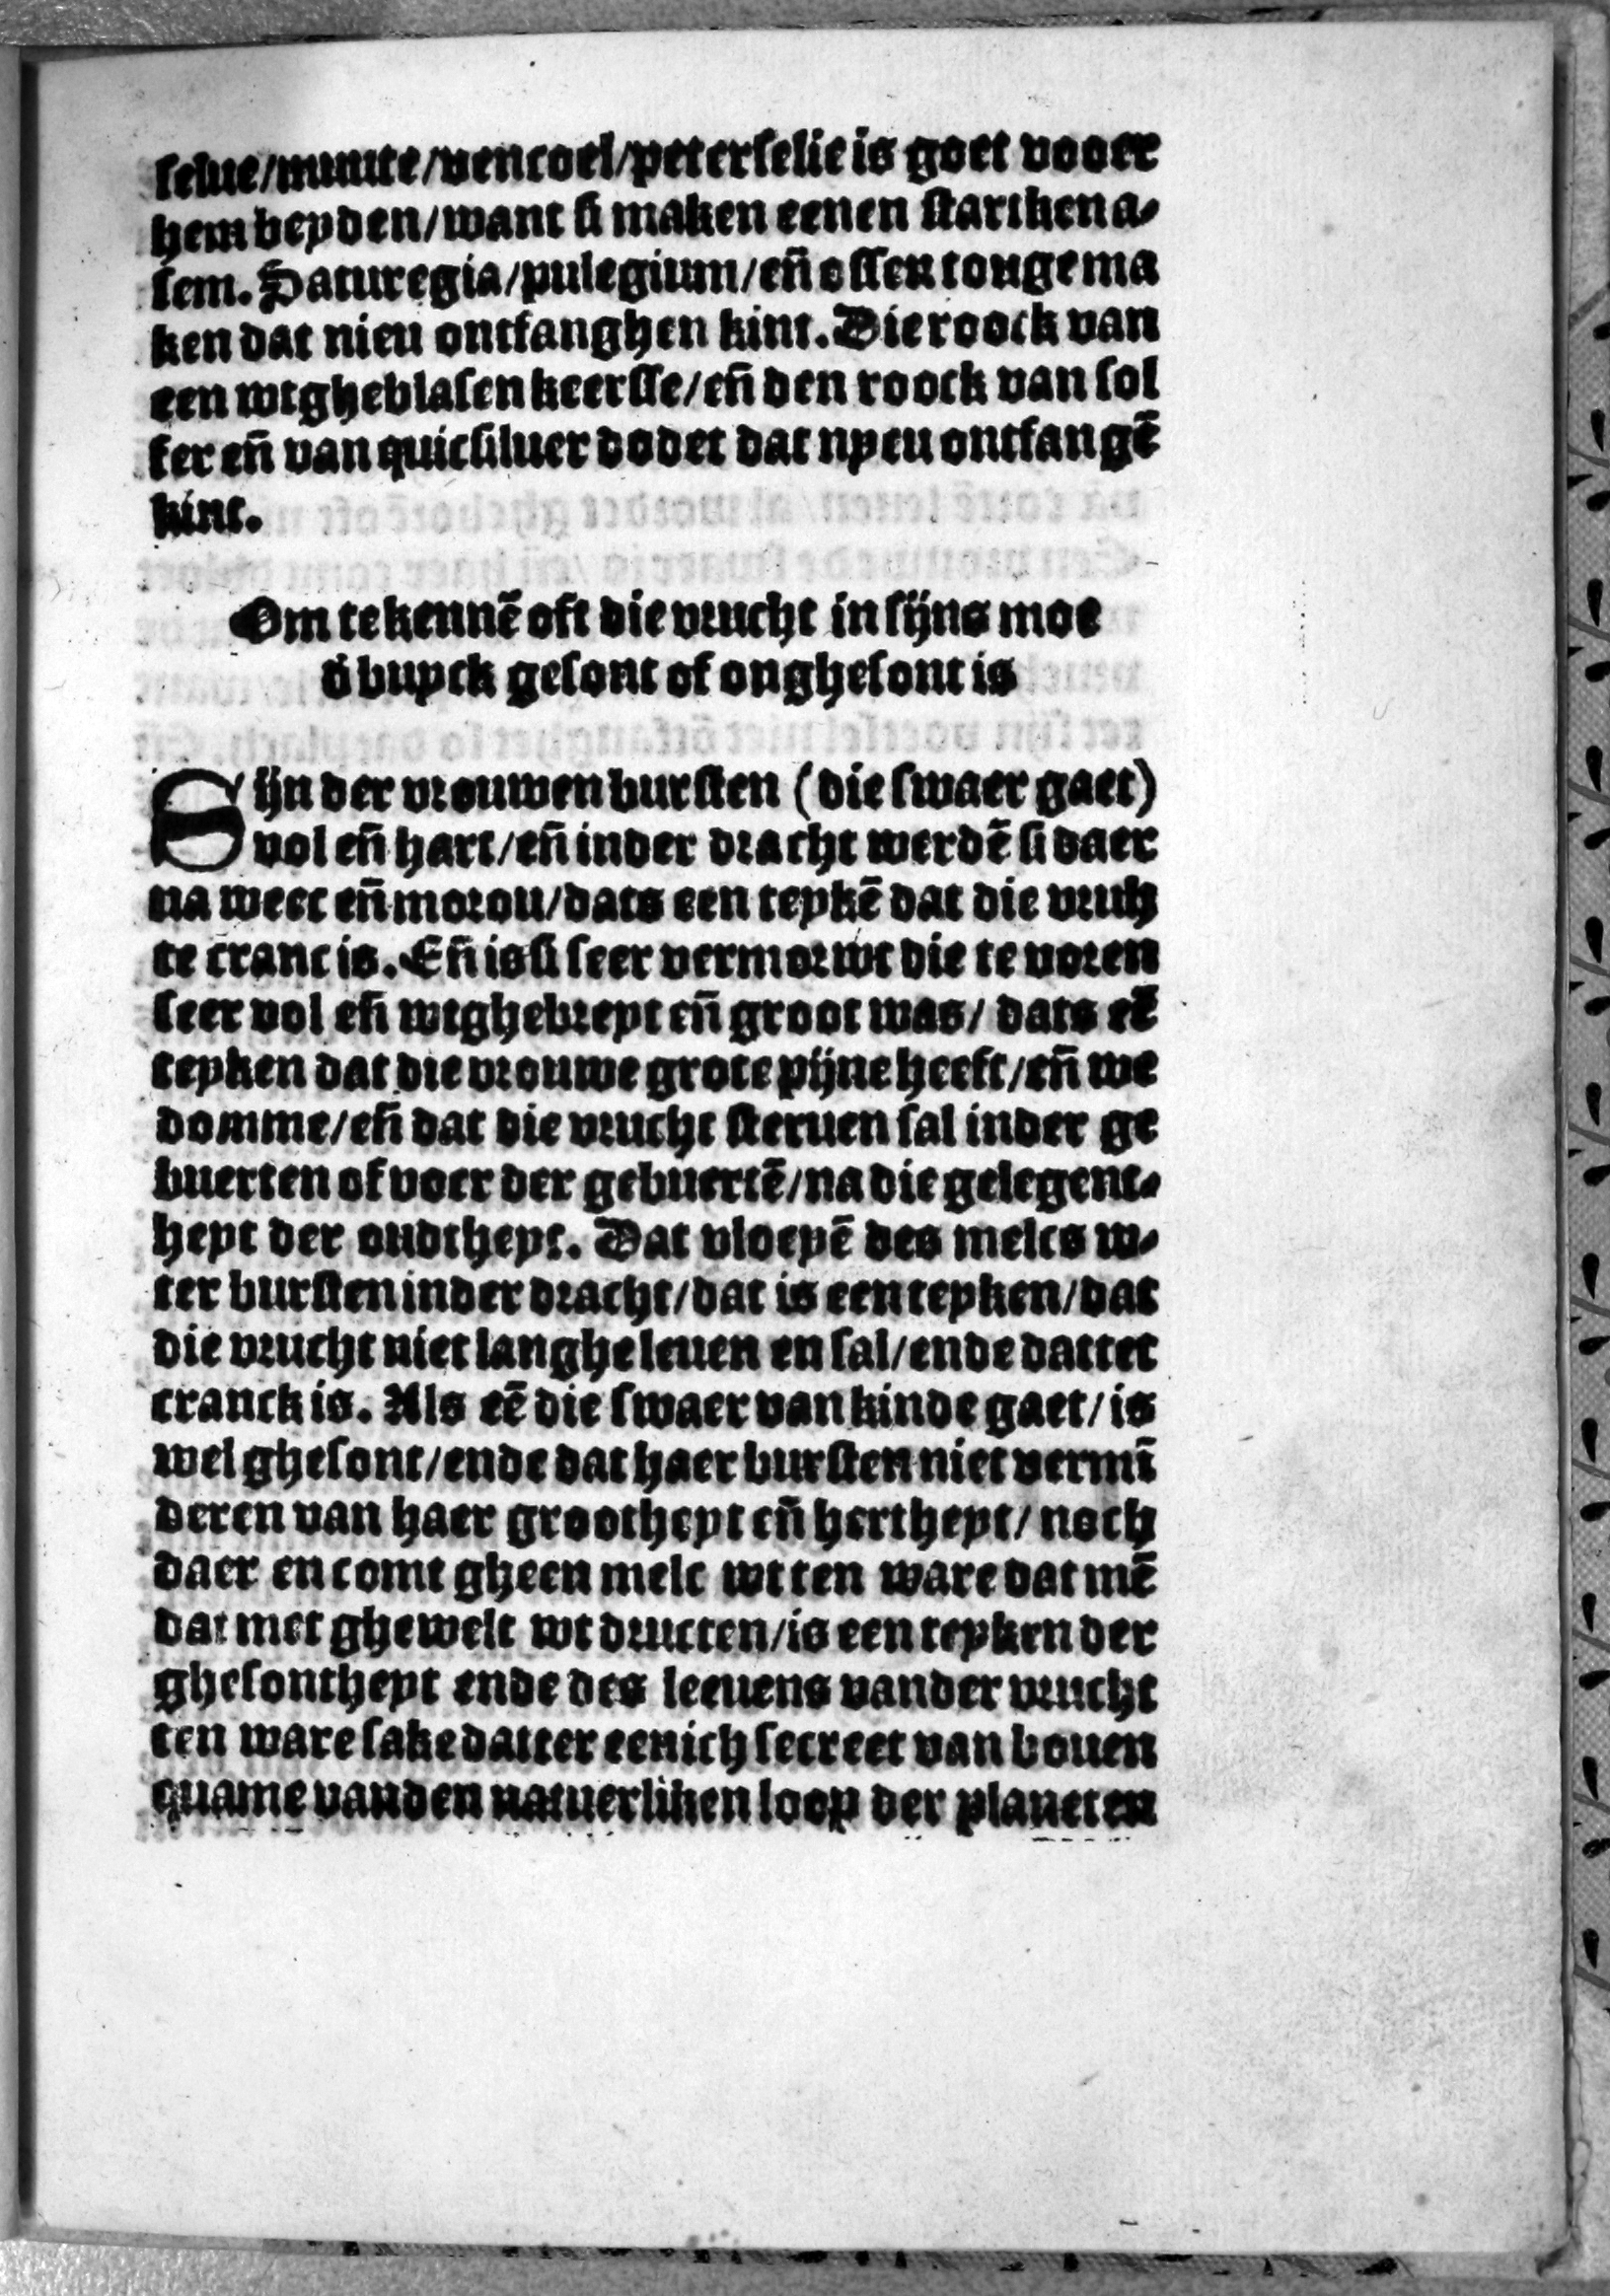 selue/munte/vencoel/peterselie is goet vooer
hem beyden/want si maken eenen starcken a⸗
sem. Saturegia/pulegium/en̄ ossen tonge ma
ken dat nieu ontfanghen kint. Die roock van
een wtgheblasen keersse/en̄ den roock van sol
fer en̄ van quicsiluer dodet dat nyeu ontfangē
kint.
Om te kennē oft die vrucht in sijns moe
d̄ buyck gesont of onghesont is
Sijn der vrouwen bursten (die swaer gaet)
vol en̄ hart/en̄ inder dracht werdē si daer
na weec en̄ morou/dats een teykē dat die vruh
te cranc is. En̄ is si seer vermorwt die te voren
seer vol en̄ wtghebreyt en̄ groot was/ dats eē
teyken dat die vrouwe grote pijne heeft/en̄ we
domme/en̄ dat die vrucht steruen sal inder ge
buerten of voer der gebuertē/na die gelegent⸗
heyt der oudtheyt. Dat vloeyē des melcs w⸗
ter bursten inder dracht/dat is een teyken/dat
die vrucht niet langhe leuen en sal/ende dattet
cranck is. Als eē die swaer van kinde gaet/is
wel ghesont/ende dat haer bursten niet vermī
deren van haer grootheyt en̄ hertheyt/ noch
daer en comt gheen melc wt ten ware dat mē
dat met ghewelt wt dructen/is een teyken der
ghesontheyt ende des leeuens vander vrucht
ten ware sake datter eenich secreet van bouen
quame vanden natuerliken loop der planeten